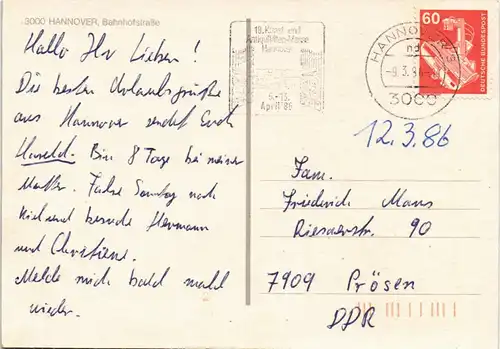 3000 HANNOVER, Bahnhofstraße
Hallo Ihr Lieben!
Die besten Urlaubsgrüße
aus Hannover sendet Euch
Harald. Bin 8 Tage bei meiner
Mutter. Fahre Sonntag nach
Kiel und besuche Hermann
und Christiane.
Melde mich bald mahl
wieder.
18. Kunst und
Antiquitäten-Messe
Hannover
5.-13.
April '86
HANNOVER
3000
60
DEUTSCHE BUNDESPOST
12.3.86
Fam.
Friederich Maus
Riesaerstr. 90
7909 Prösen
DDR